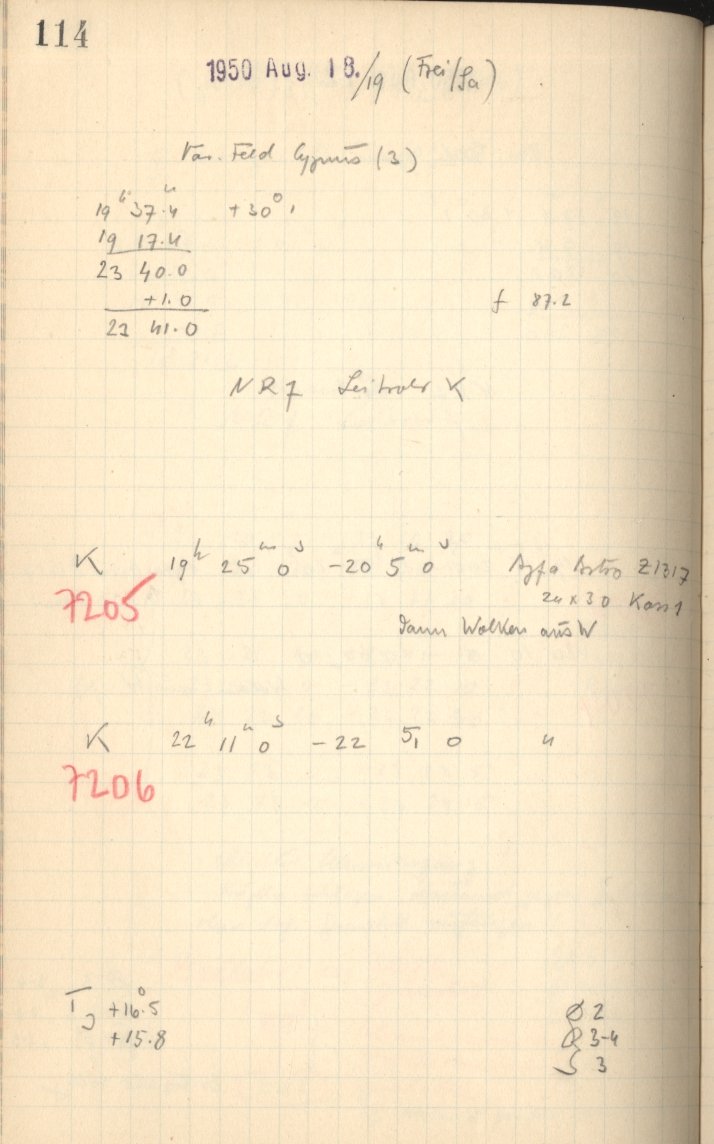 114
1950 Aug. 18./19 (Frei/Sa)
Var. Feld Cygnus (3)
19h 37m.4 +30° 1
19 17.4
23 40.0
+1.0 f 87.2
23 41.0
NR 7 Leitrohr K
K 19h 25m 0s -20h 5m 0s Agfa Astro Z1317
7205 24x30 Kass 1
Dann Wolken aus W
K 22h 11m 0s -22 51 0 "
7206
T +16°.5 2
+15.8 3-4
S 3